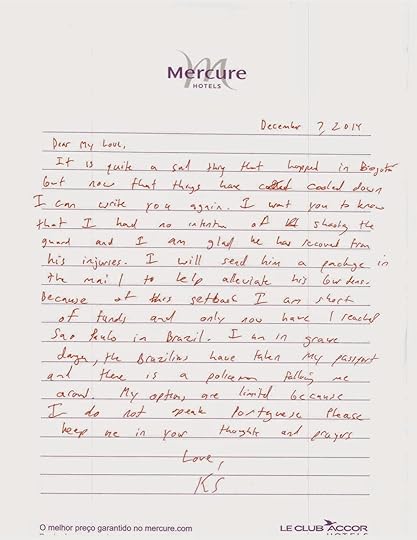 Mercure
HOTELS
December 7, 2014
Dear My Love,
It is quite a sad thing that happend in Bogota
but now that things have cooled down
I can write you again. I want you to know
that I had no intention of shooting the
guard and I am glad he has recoved from
his injuries. I will send him a package in
the mail to help alleviate his burdens.
Because of this setback I am short
of funds and only now have I reached
Sao Paulo in Brazil. I am in grave
danger, the Brazilians have taken my passport
and there is a policeman following me
around. My options are limited because
I do not speak Portuguese Please
keep me in your thoughts and prayers
Love,
KS
O melhor preço garantido no mercure.com
LE CLUB ACCOR
HOTELS